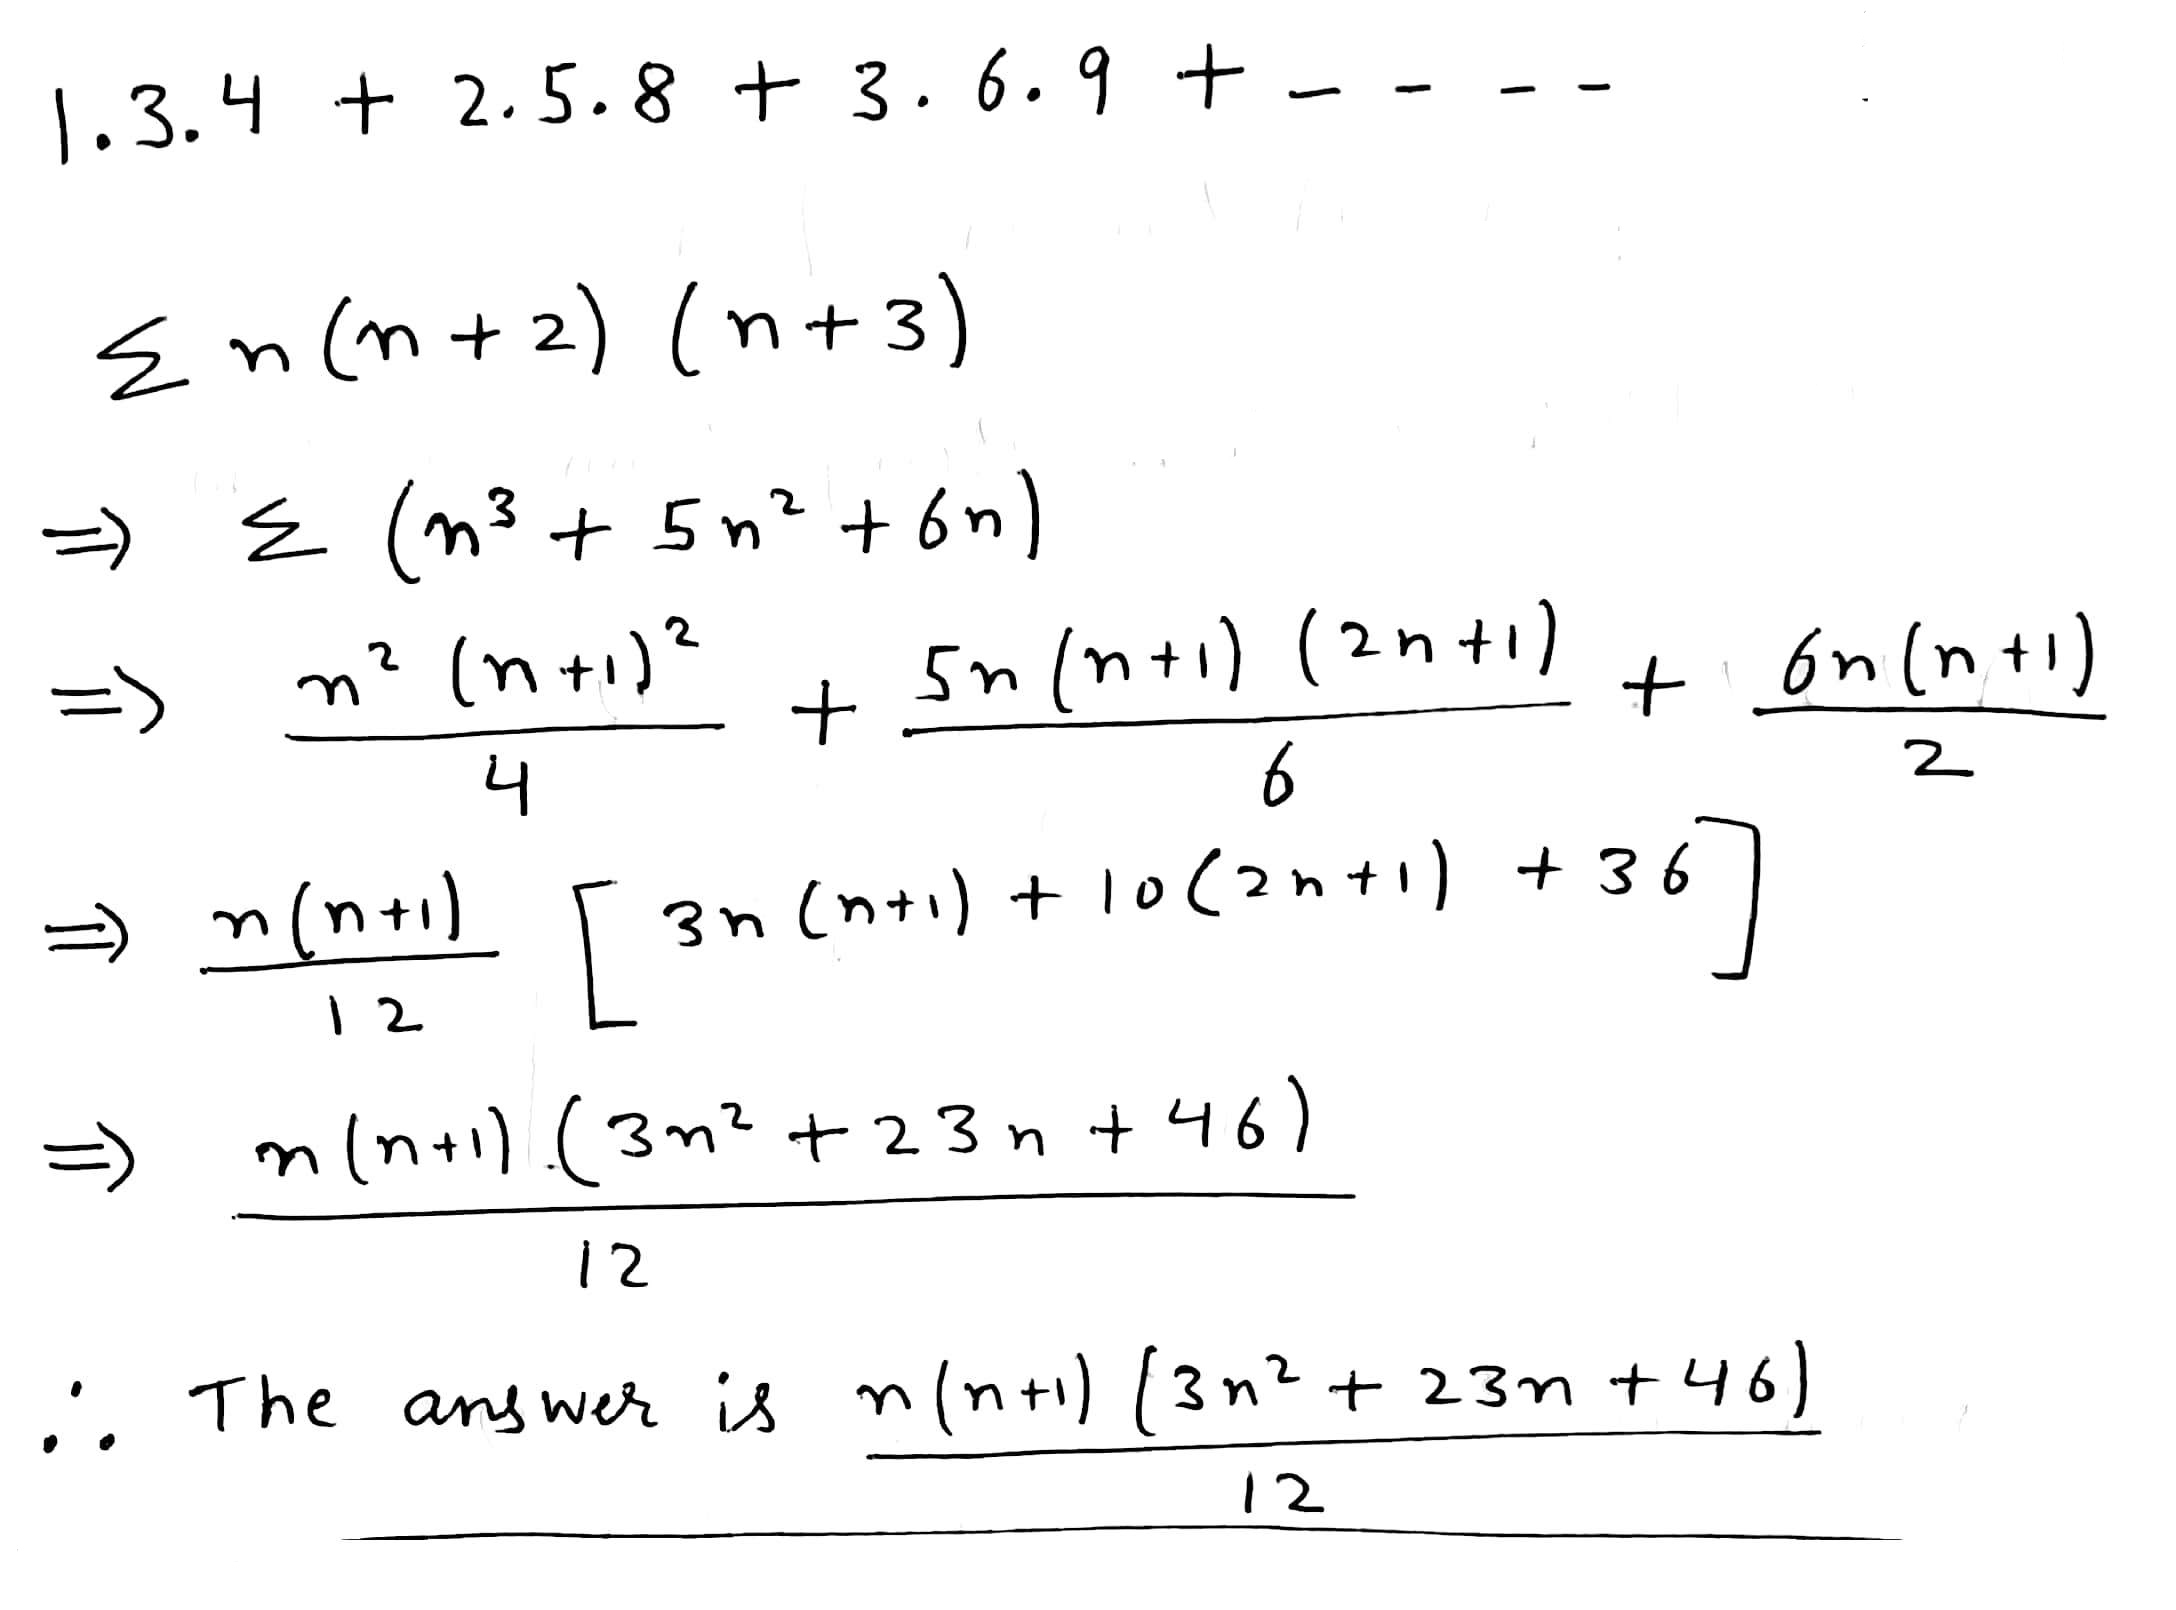 1.3.4 + 2.5.8 + 3.6.9 + - - - -
Σ n(n+2) (n+3)
⇒ Σ (n³ + 5n² + 6n)
⇒ n² (n+1)² / 4 + 5n (n+1) (2n+1) / 6 + 6n(n+1) / 2
⇒ n(n+1) / 12 [ 3n (n+1) + 10(2n+1) + 36 ]
⇒ n(n+1) (3n² + 23n + 46) / 12
∴ The answer is n(n+1) (3n² + 23n + 46) / 12